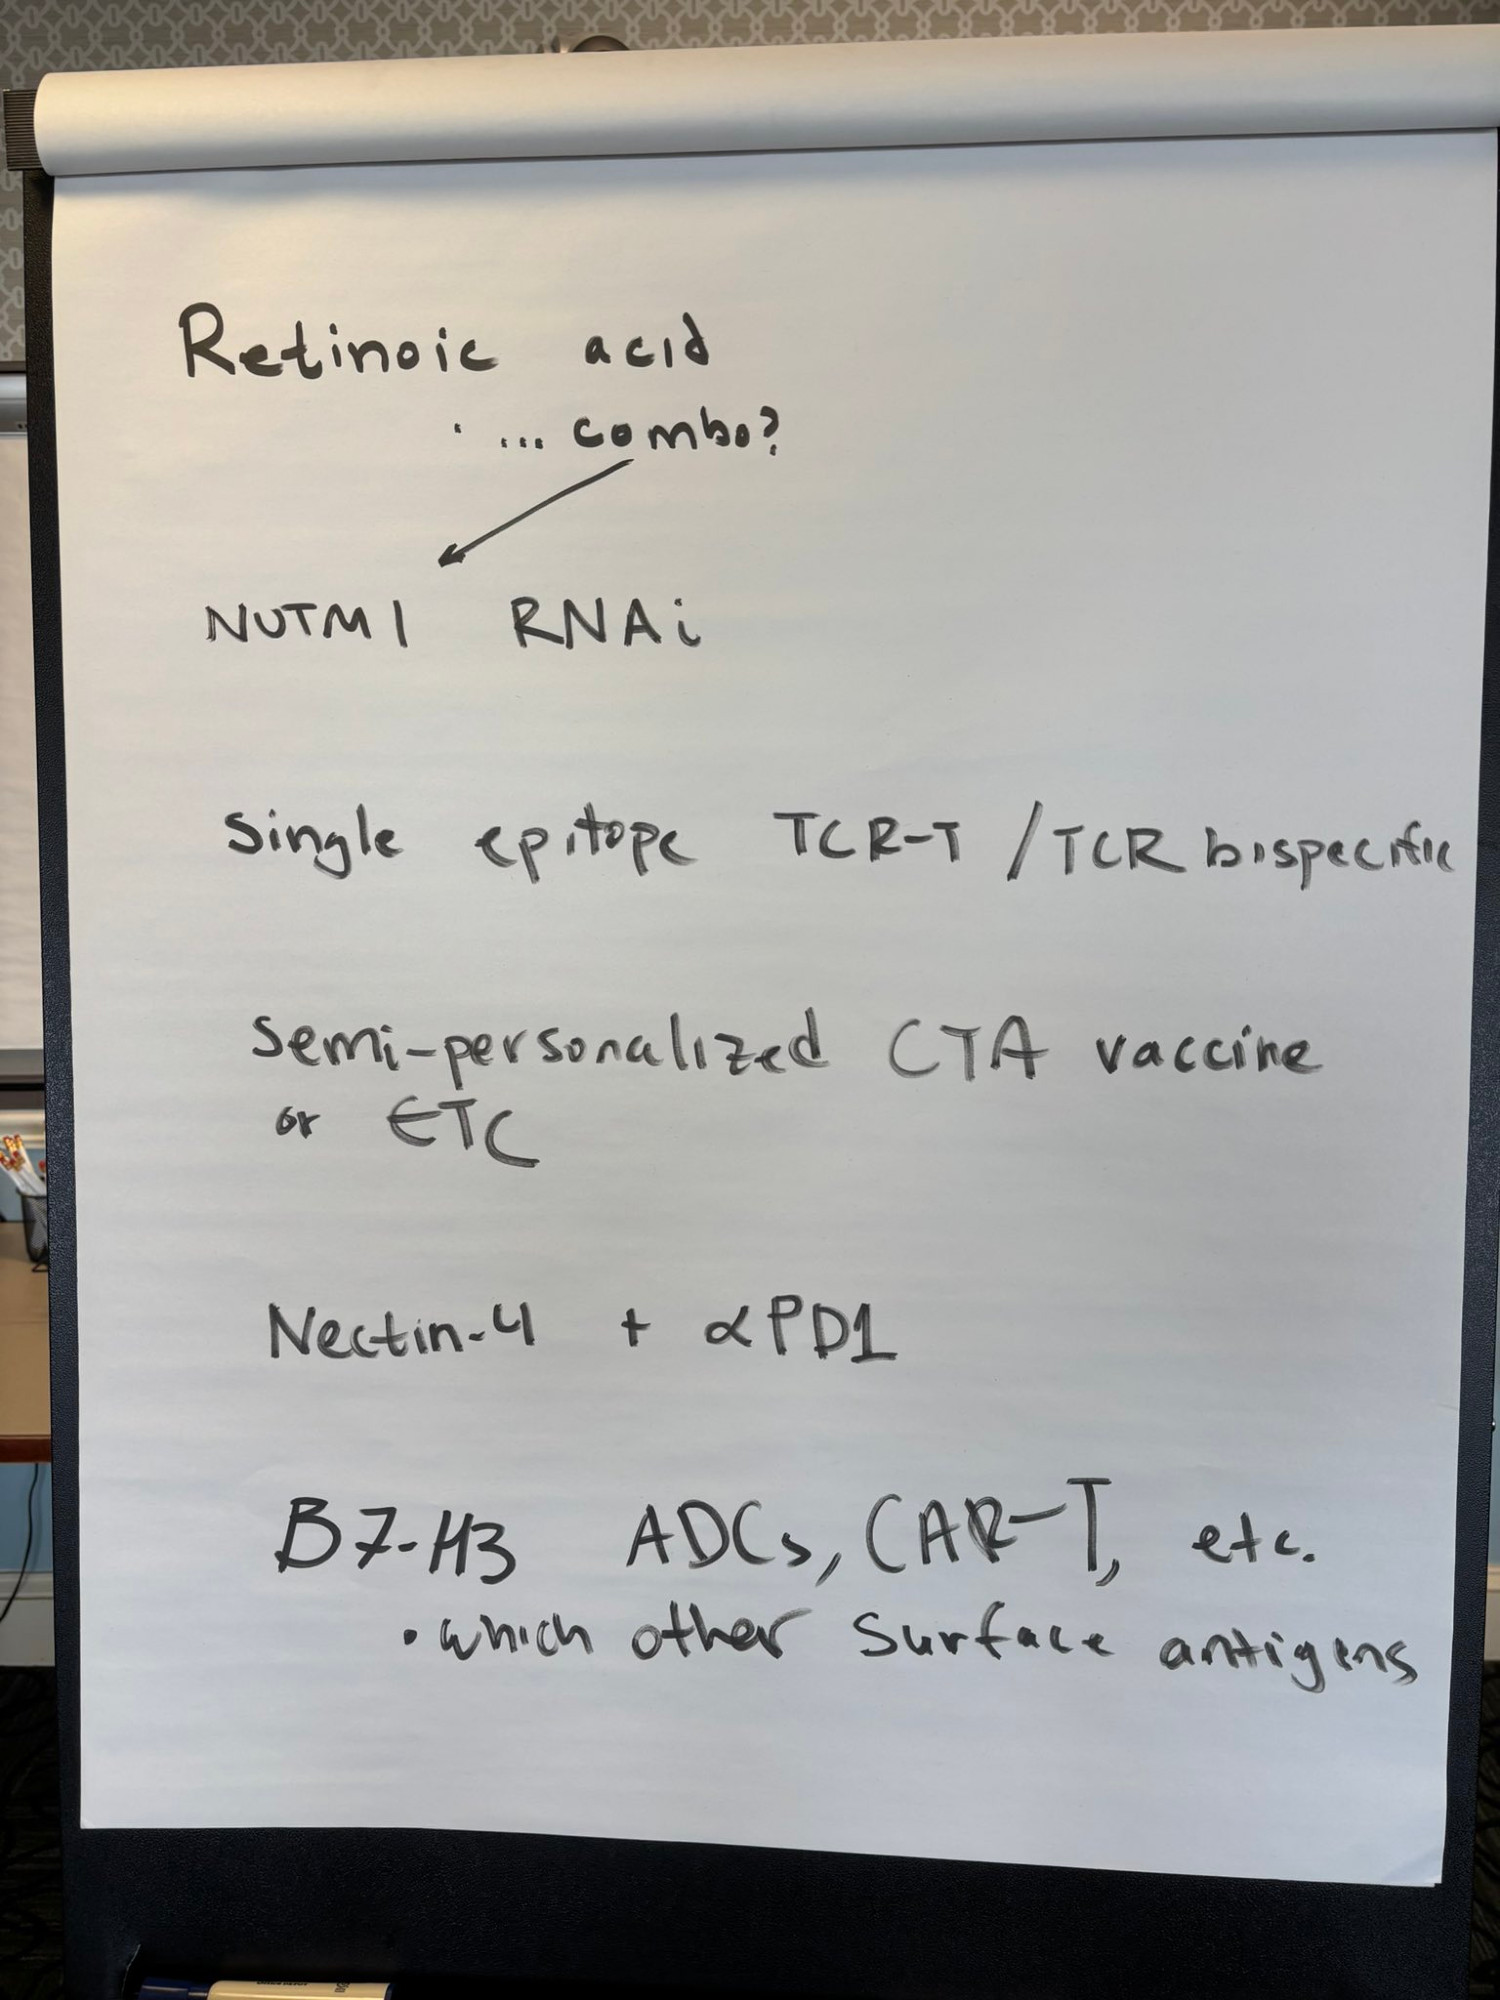 Retinoic acid
· ... combo?
NUTM1 RNAi
Single epitope TCR-T / TCR bispecific
Semi-personalized CTA vaccine
or ETC
Nectin-4 + αPD1
B7-H3 ADCs, CAR-T, etc.
• which other surface antigens